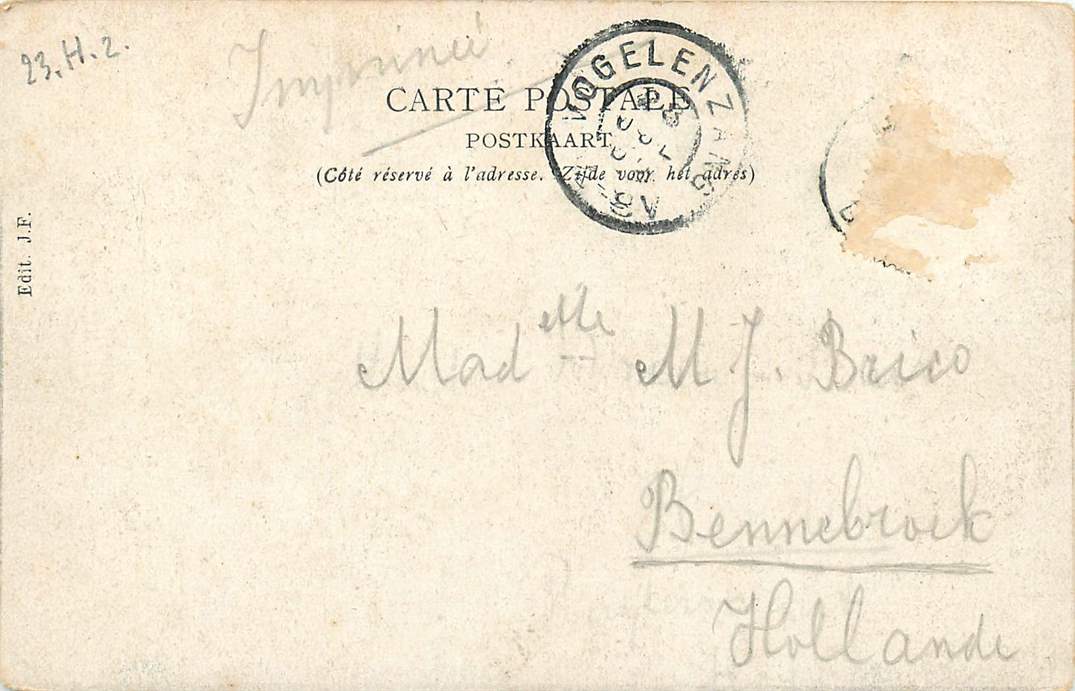 23.H.2.
Imprimé
CARTE POSTALE
POSTKAART
(Côté réservé à l'adresse. Zijde voor het adres)
VOGELENZANG
Edit. J.F.
Madelle M J. Brico
Bennebroek
Hollande